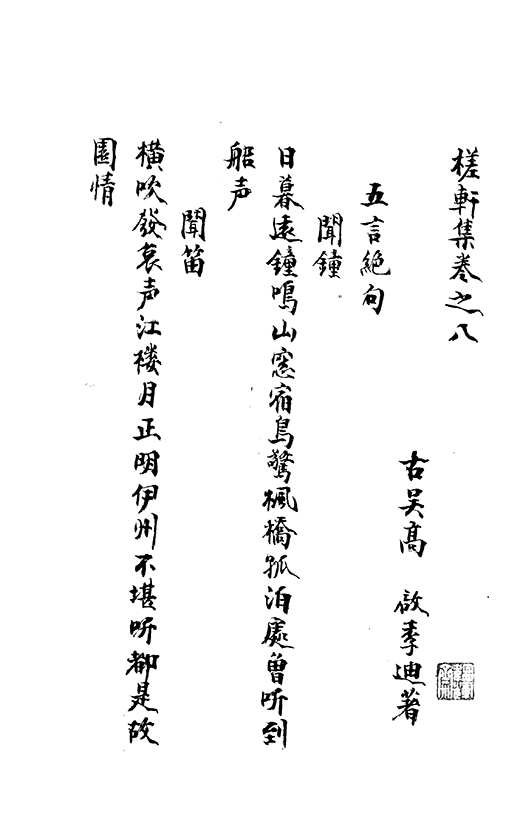 槎軒集卷之八
古吴髙 啟季迪著
五言絶句
聞鐘
日暮遠鐘鳴山窓宿鳥驚楓橋孤泊處曾听到
船声
聞笛
横吹發哀声江楼月正明伊州不堪听都是故
園情